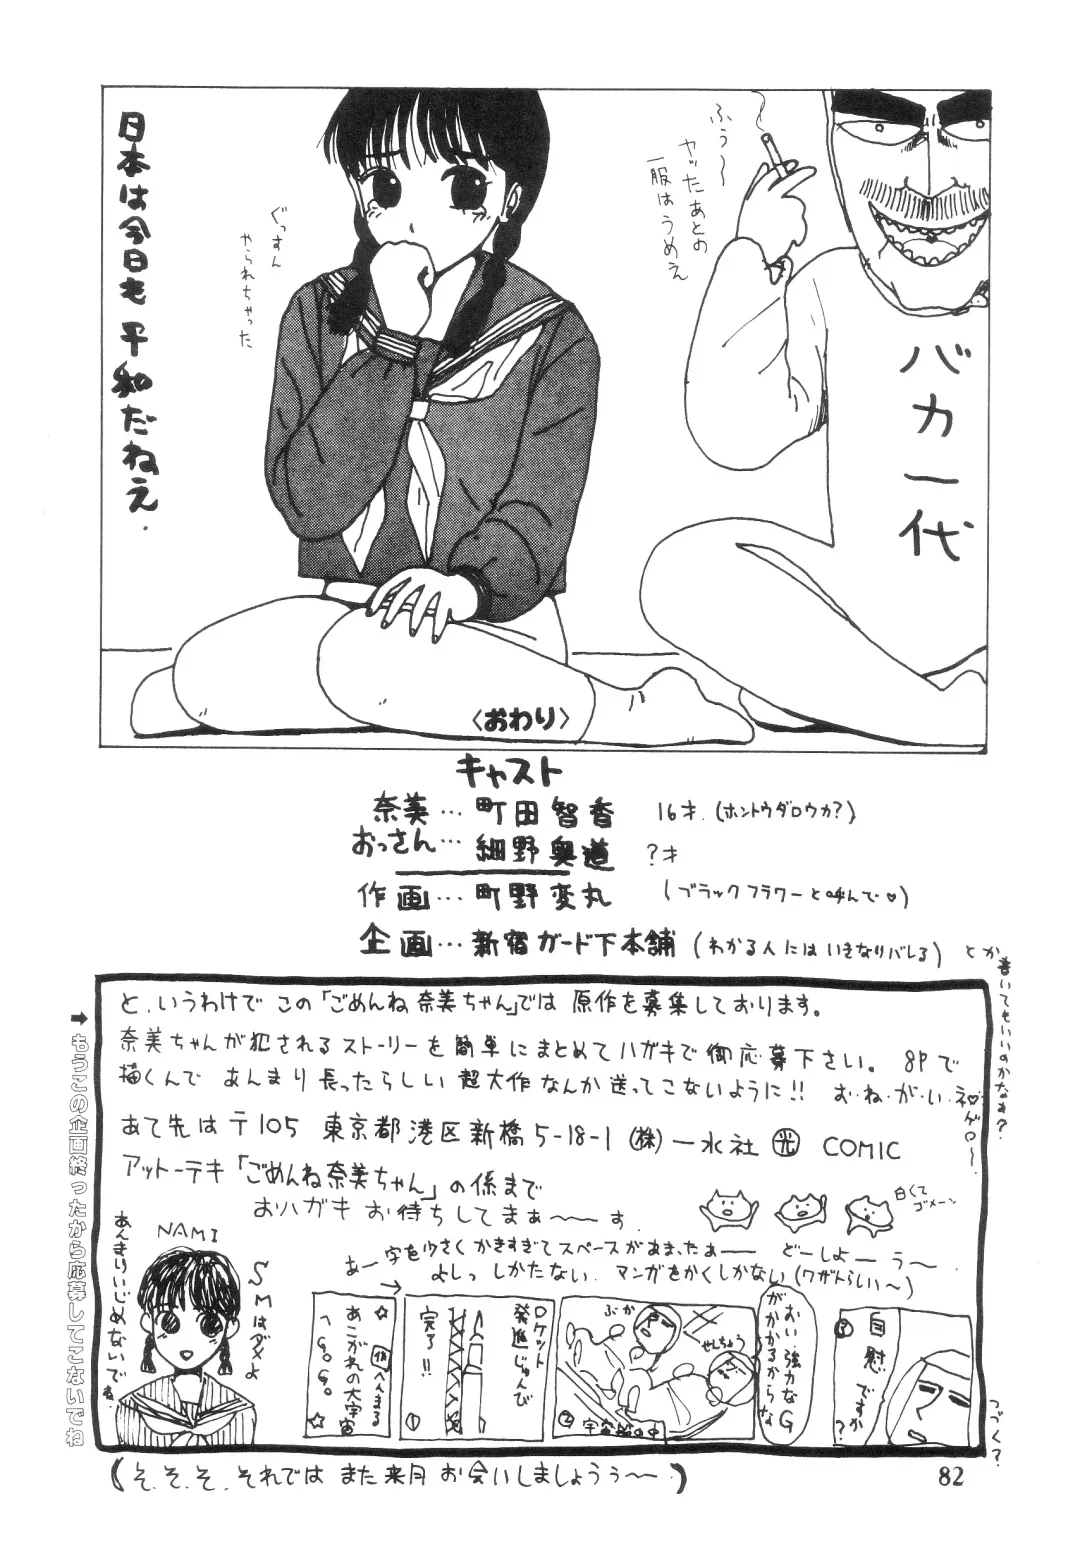 ふぅ～～
ヤッたあとの
一服はうめえ
バカ一代
ぐっすん
やられちゃった
日本は今日も平和だねえ.
〈おわり〉
キャスト
奈美…町田智香 16才.(ホントウダロウカ?)
おっさん…細野奥道 ?才
作画…町野変丸 (ブラックフラワーと呼んで♡)
企画…新宿ガード下本舗 (わかる人にはいきなりバレる)
とか書いてもいいのかなぁ?
ゲロ～
と、いうわけで この「ごめんね奈美ちゃん」では 原作を募集しております。
奈美ちゃんが犯されるストーリーを簡単にまとめてハガキで御応募下さい。8Pで
描くんで あんまり長ったらしい超大作なんか送ってこないように!! お・ね・が・い・ネ♡
あて先は〒105 東京都港区新橋5-18-1 (株)一水社 光 COMIC
アットーテキ「ごめんね奈美ちゃん」の係まで
おハガキ お待ちしてまぁ～～す.
白くて
ゴメーン
あー字を小さくかきすぎてスペースがあまったぁー どーしよーうー
よしっ しかたない マンガをかくしかない (ワザトらしい～)
NAMI
SMはダメよ
あんまりいじめないでね.
☆あこがれの大宇宙へGoGo☆
①
ロケット
発進じゅんび
完了!!
②
宇宙船の中
ぶか
せんちょう
おい強力なG
がかかるからな
③
自慰ですか?
つづく?
➡もうこの企画終ったから応募してこないでね
(そ.そ.そ.それでは また来月 お会いしましょうぅ～)
82